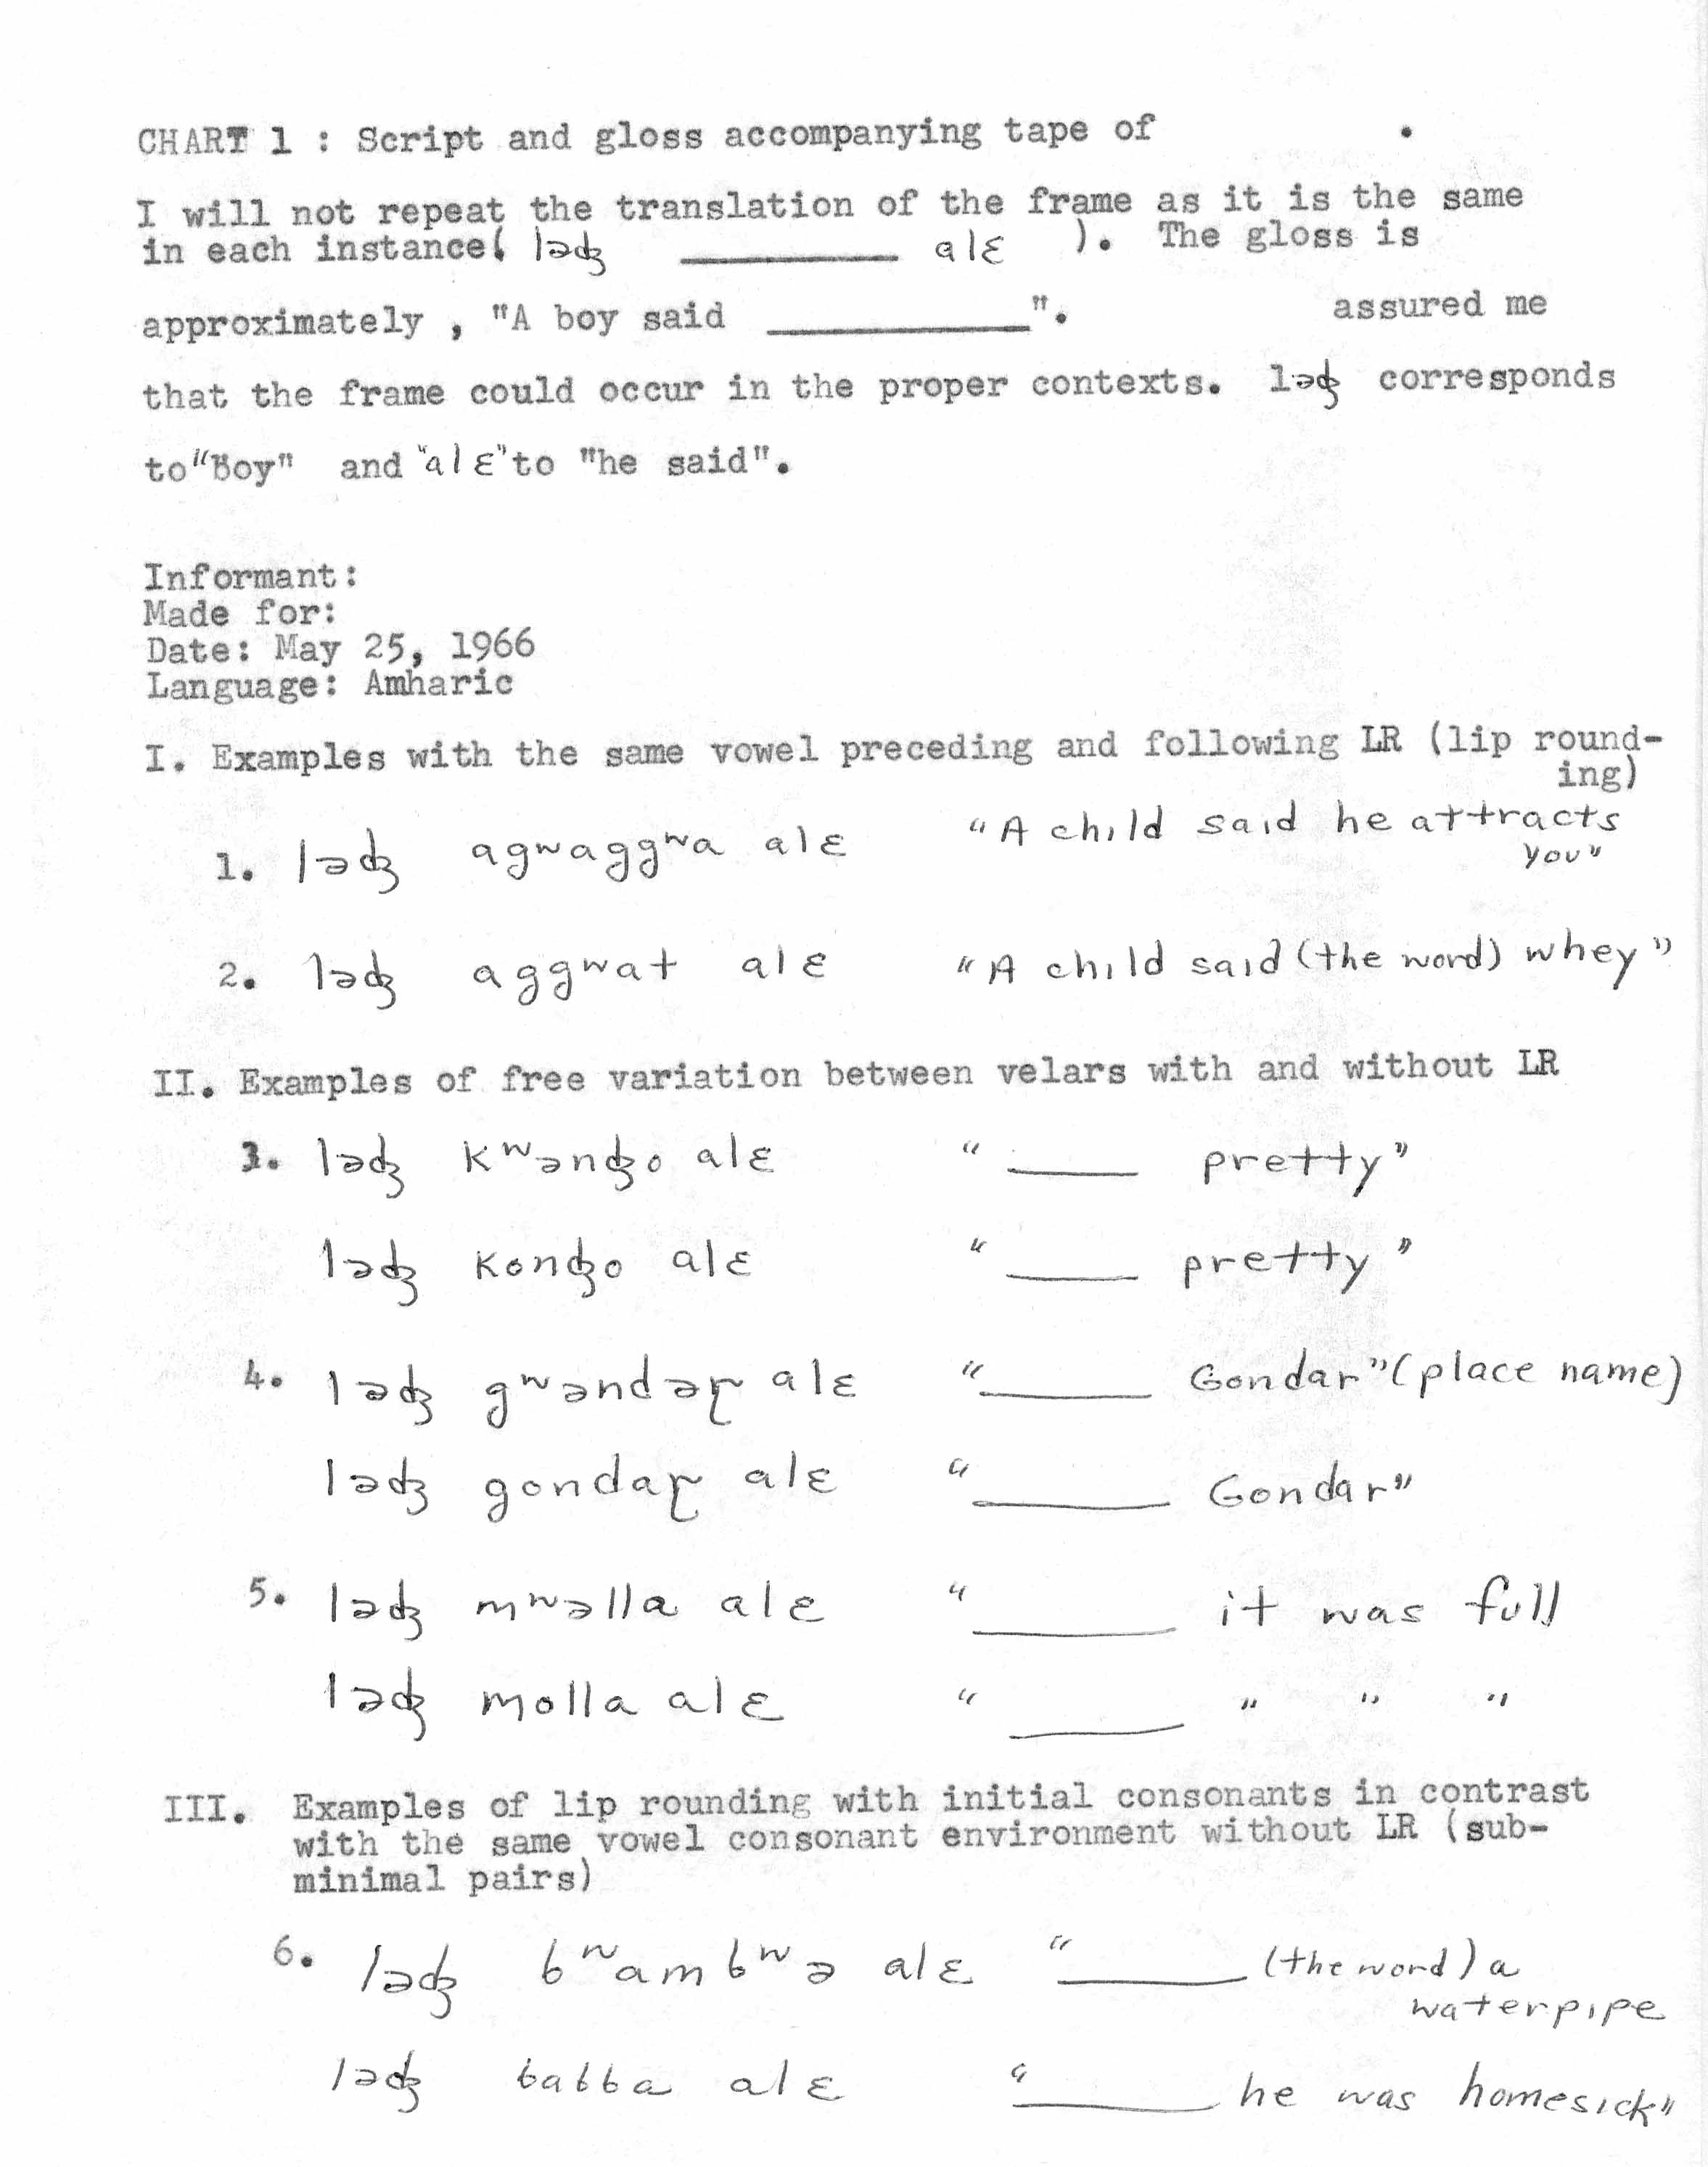 CHART 1 : Script and gloss accompanying tape of .
I will not repeat the translation of the frame as it is the same
in each instance( ləʤ ______ alɛ ). The gloss is
approximately , "A boy said ______". assured me
that the frame could occur in the proper contexts. ləʤ corresponds
to "Boy" and "alɛ" to "he said".
Informant:
Made for:
Date: May 25, 1966
Language: Amharic
I. Examples with the same vowel preceding and following LR (lip round-
ing)
1. ləʤ agʷaggʷa alɛ "A child said he attracts
you"
2. ləʤ aggʷat alɛ "A child said (the word) whey"
II. Examples of free variation between velars with and without LR
3. ləʤ kʷənʤo alɛ "______ pretty"
ləʤ konʤo alɛ "______ pretty"
4. ləʤ gʷəndəɽ alɛ "______ Gondar" (place name)
ləʤ gondaɽ alɛ "______ Gondar"
5. ləʤ mʷəlla alɛ "______ it was full
ləʤ molla alɛ "______ " " "
III. Examples of lip rounding with initial consonants in contrast
with the same vowel consonant environment without LR (sub-
minimal pairs)
6. ləʤ bʷambʷə alɛ "______ (the word) a
waterpipe
ləʤ babba alɛ "______ he was homesick"